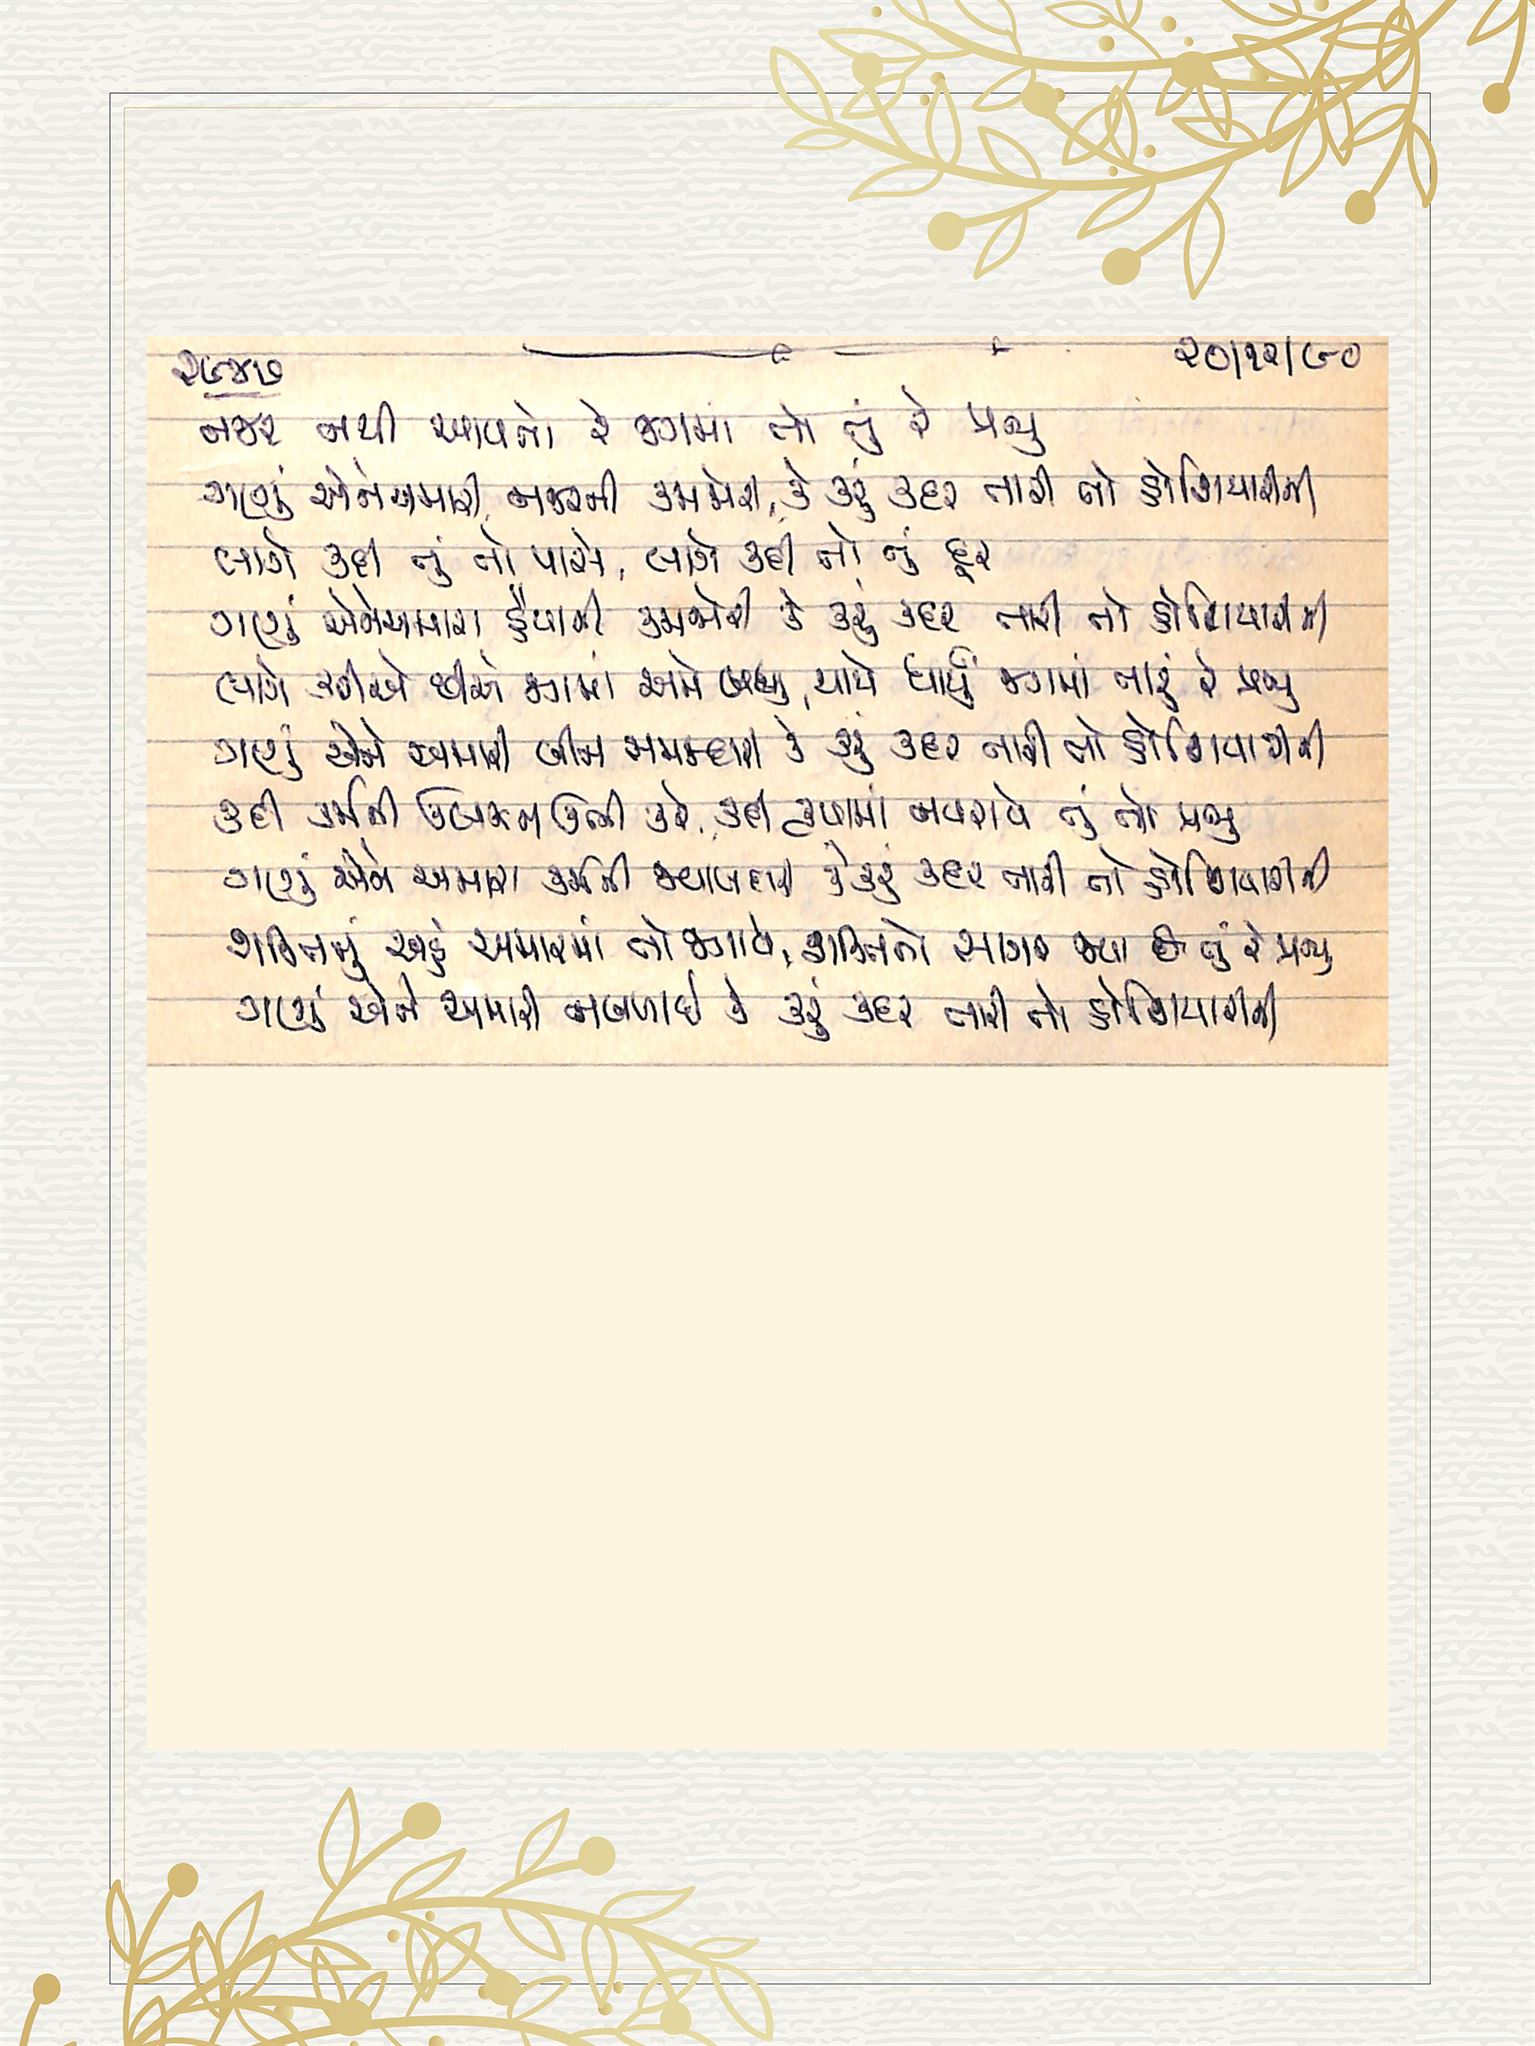 ૨૯૪૭
૨૦/૧૨/૯૦
નજર નથી આવતો રે જગમાં તો તું રે પ્રભુ
ગણું એને અમારી નજરની કમજોરી, કે કરું કદર તારી તો હોશિયારીની
લાગે કદી તું તો પાસે, લાગે કદી તો તું દૂર
ગણું એને અમારા હૈયાની કમજોરી કે કરું કદર તારી તો હોશિયારીની
લાગે કરીએ છીએ જગમાં અમે બધું, થાયે ધાર્યું જગમાં તારું રે પ્રભુ
ગણું એને અમારી બીન સમજદારી કે કરું કદર તારી તો હોશિયારીની
કદી કર્મની ઉલઝન ઊભી કરે, કદી કૃપામાં નવરાવે તું તો પ્રભુ
ગણું એને અમારા કર્મની જવાબદારી કે કરું કદર તારી તો હોશિયારીની
શક્તિનું અહં અમારામાં તો જગાવે, શક્તિનો સાગર જ્યાં છે તું રે પ્રભુ
ગણું એને અમારી નબળાઈ કે કરું કદર તારી તો હોશિયારીની